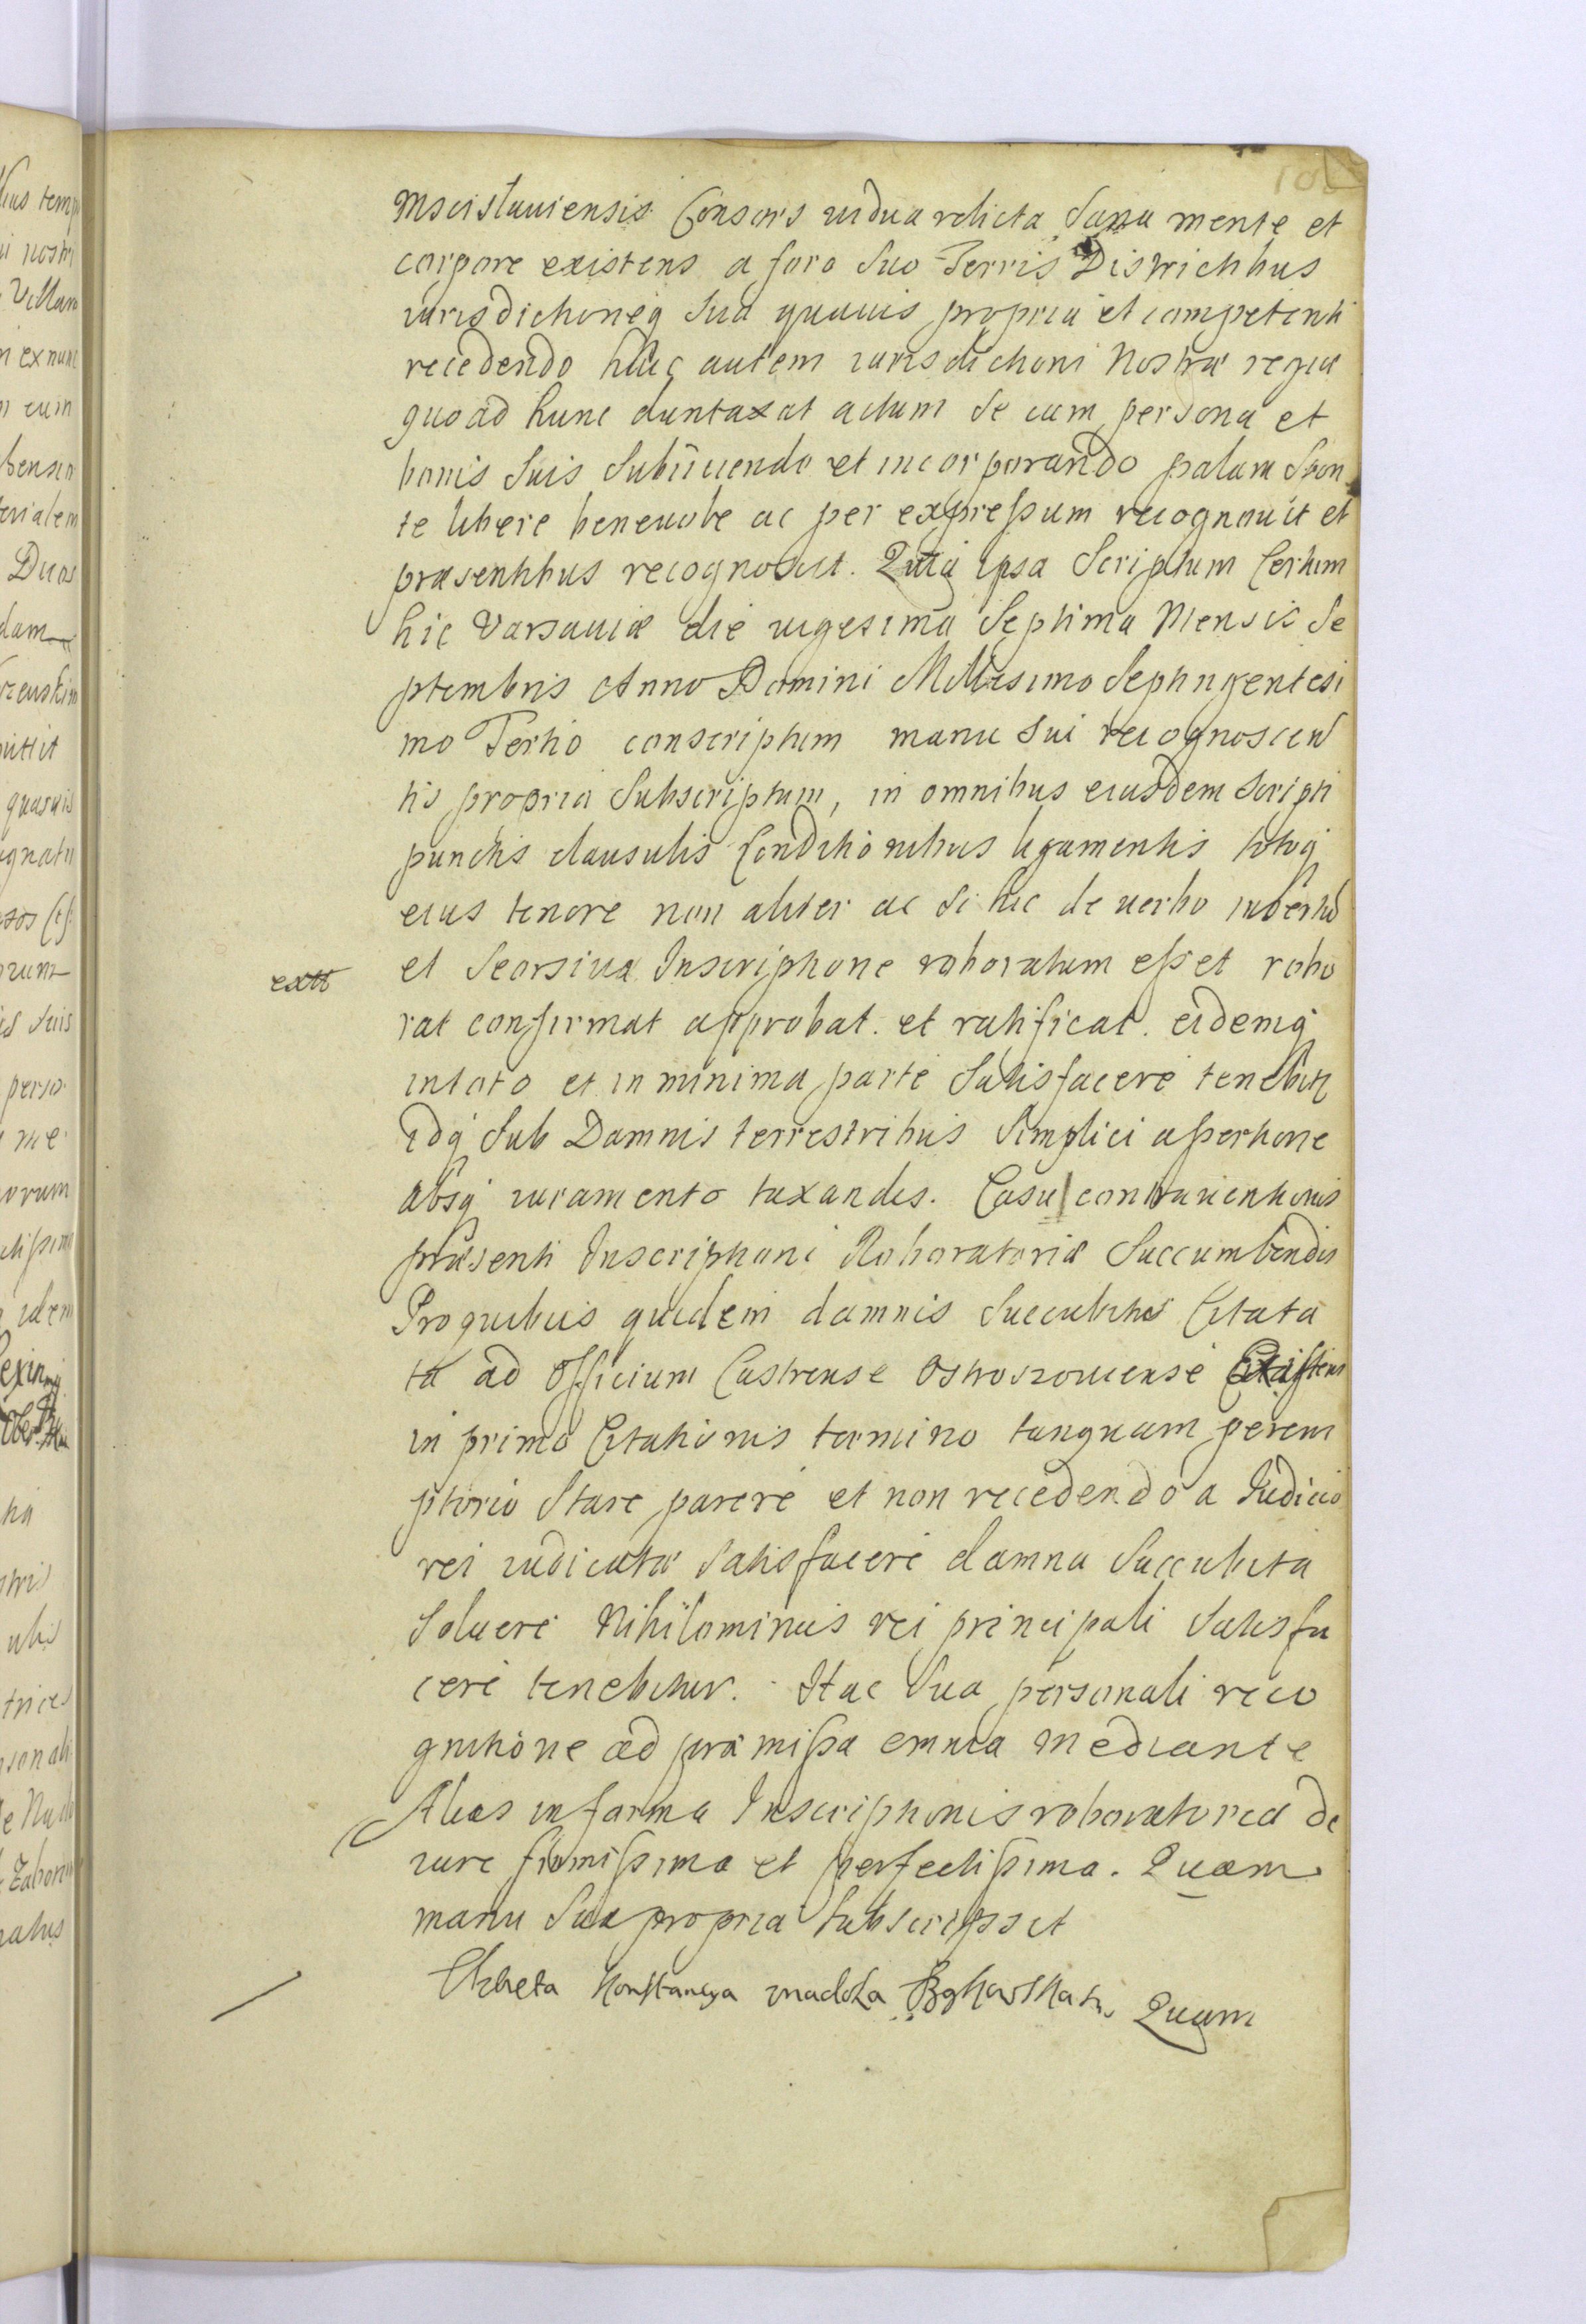 Mscislauiensis Consors uidua relicta Sana mente et
corpore existens a foro Suo Terris Districtibus
iurisdictioneq Sua quauis propria et competenti
recedendo huic autem iurisdictioni Nostræ regiæ
quoad hunc duntaxat actum Se cum persona et
bonis Suis Subiiciendo et incorporando palam Spon
te libere beneuole ac per expressum recognouit et
præsentibus recognoscit. Quia ipsa Scriptum Certum
hic Varsauiæ die uigesima Septima Mensis Se
ptembris Anno Domini Millesimo Septingentesi
mo Tertio conscriptum manu Sui recognoscen
tis propria Subscriptum, in omnibus eiusdem Scripti
punctis clausulis Conditionibus ligamentis totoq
eius tenore non aliter ac Si hic de uerbo
extt
et Seorsiua Inscriptione roboratum esset robo
rat confirmat approbat et ratificat. eidemq
intoto et in minima parte Satisfacere tenebitr
idq Sub Damnis terrestribus Simplici assertione
absq iuramento taxandis. Casu contrauentionis
præsenti Inscriptioni Roboratoriæ Succumbendis
Proquibus quidem damnis Succubitis Citata
ta ad Officium Castrense Ostrzeszouiense Existens
in primo Citationis termino tanquam perem
ptorio Stare parere et non recedendo a Iudicio
rei iudicatæ Satisfacere damna Succubita
Soluere Nihilominus rei principali Satisfa
cere tenebitur. Hac Sua personali reco
gnitione ad præmissa omnia mediante
Alias in forma Inscriptionis roboratoria de
iure firmissima et perfectissima. Quam
manu Sua propria Subscripsit
Elzbieta Konstancya Quam